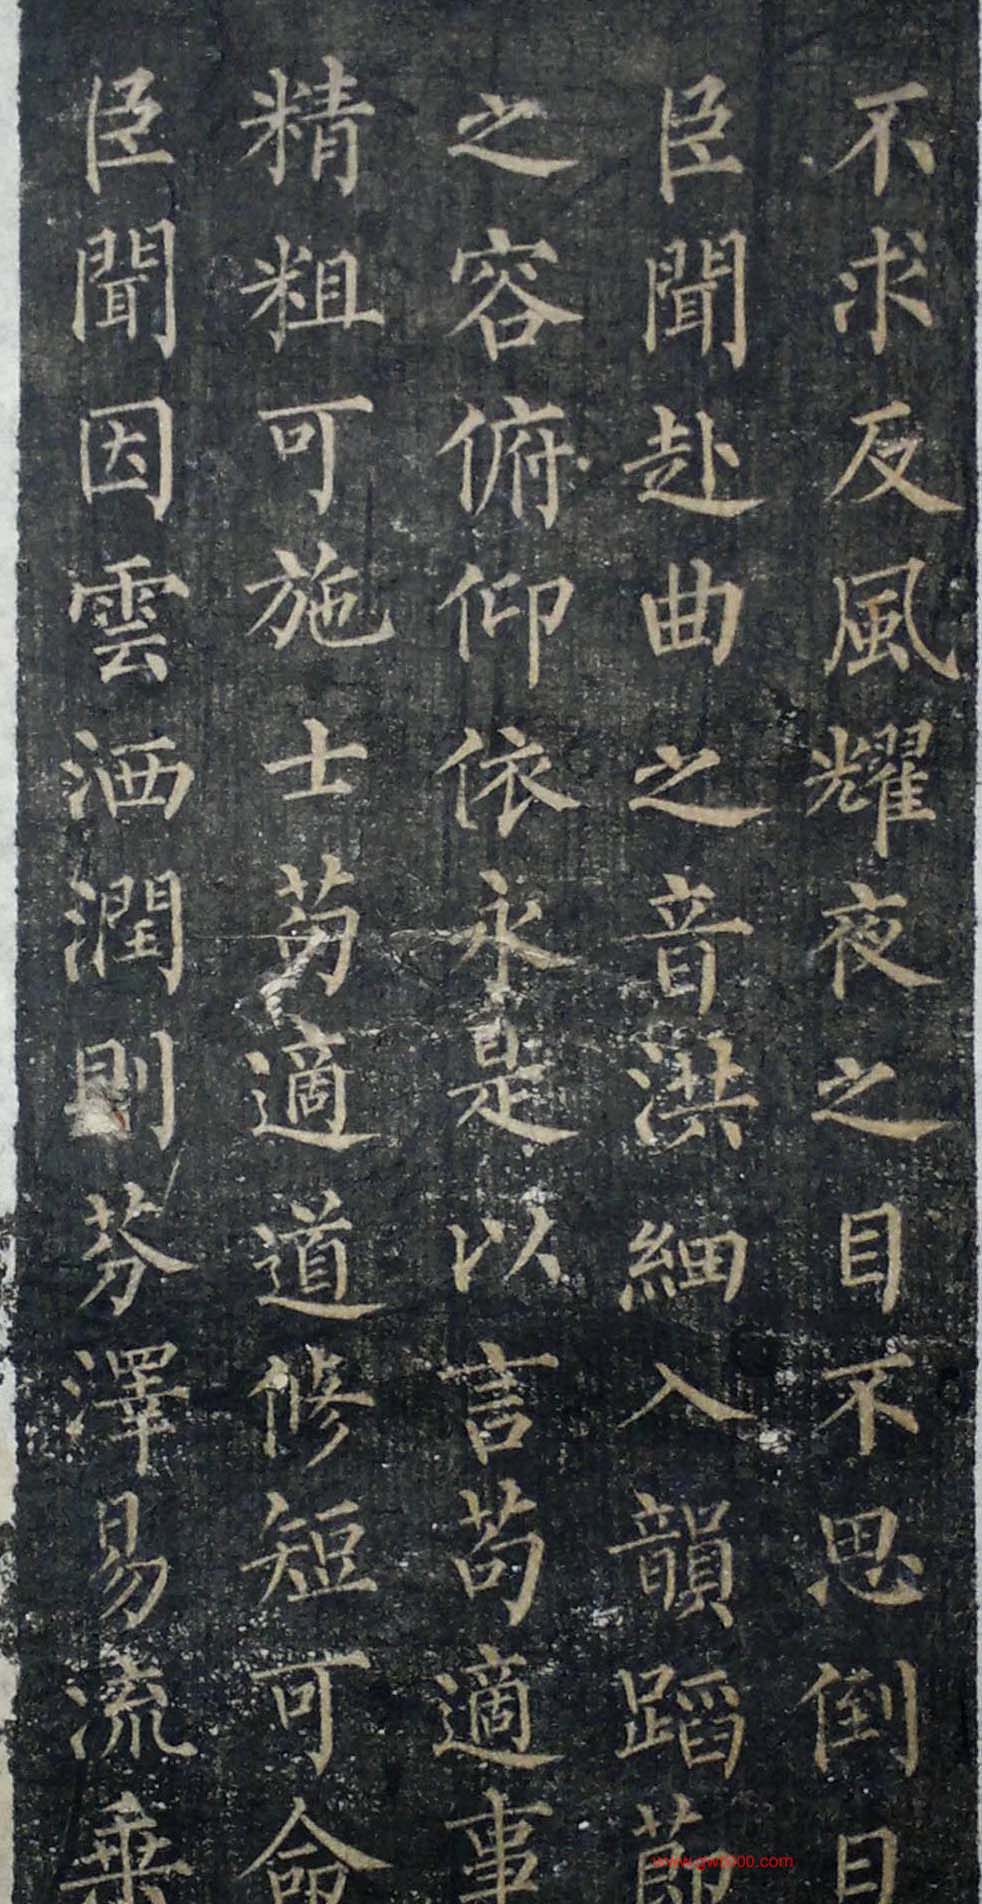 不求反風耀夜之目不思倒日
臣聞赴曲之音洪細入韻蹈節
之容俯仰依永是以言苟適事
精粗可施士苟適道修短可命
臣聞因雲洒潤則芬澤易流乗
www.gw2000.com